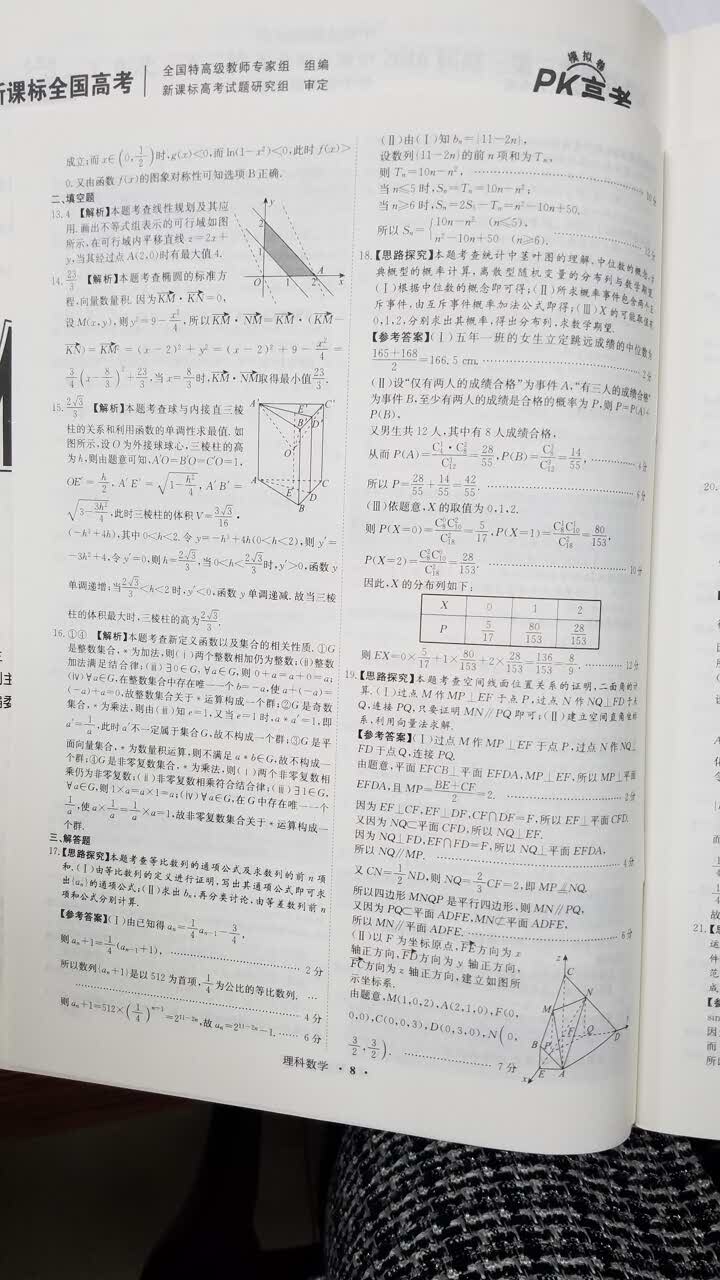 新课标全国高考
全国特高级教师专家组 组编
新课标高考试题研究组 审定
模拟卷
PK高考
成立;而x∈(0,1/2)时,g(x)<0,而ln(1-x²)<0,此时f(x)>
0.又由函数f(x)的图象对称性可知选项B正确.
二、填空题
13.4 【解析】本题考查线性规划及其应
用.画出不等式组表示的可行域如图
所示,在可行域内平移直线z=2x+
y,当其经过点A(2,0)时有最大值4.
14.23/3 【解析】本题考查椭圆的标准方
程,向量数量积.因为KM·KN=0,
设M(x,y),则y²=9-x²/4,所以KM·NM=KM·(KM-
KN)=KM²=(x-2)²+y²=(x-2)²+9-x²/4=
3/4(x-8/3)²+23/3,当x=8/3时,KM·NM取得最小值23/3.
15.2√3/3 【解析】本题考查球与内接直三棱
柱的关系和利用函数的单调性求最值.如
图所示,设O为外接球球心,三棱柱的高
为h,则由题意可知,A′O=B′O=C′O=1,
OE′=h/2,A′E′=√(1-h²/4),A′B′=
√(3-3h²/4),此时三棱柱的体积V=3√3/16·
(-h³+4h),其中0<h<2.令y=-h³+4h(0<h<2),则y′=
-3h²+4,令y′=0,则h=2√3/3,当0<h<2√3/3时,y′>0,函数y
单调递增;当2√3/3<h<2时,y′<0,函数y单调递减.故当三棱
柱的体积最大时,三棱柱的高为2√3/3.
16.①④ 【解析】本题考查新定义函数以及集合的相关性质.①G
是整数集合,*为加法,则(ⅰ)两个整数相加仍为整数;(ⅱ)整数
加法满足结合律;(ⅲ)∃0∈G,∀a∈G,则0+a=a+0=a;
(ⅳ)∀a∈G,在整数集合中存在唯一一个b=-a,使a+(-a)=
(-a)+a=0,故整数集合关于*运算构成一个群;②G是奇数
集合,*为乘法,则由(ⅲ)知e=1,又当e=1时,a*a′=1,即
a′=1/a,此时a′不一定属于集合G,故不构成一个群;③G是平
面向量集合,*为数量积运算,则不满足a*b∈G,故不构成一
个群;④G是非零复数集合,*为乘法,则(ⅰ)两个非零复数相
乘仍为非零复数;(ⅱ)非零复数相乘符合结合律;(ⅲ)∃1∈G,
∀a∈G,则1×a=a×1=a;(ⅳ)∀a∈G,在G中存在唯一一个
1/a,使a×1/a=1/a×a=1,故非零复数集合关于*运算构成一
个群.
三、解答题
17.【思路探究】本题考查等比数列的通项公式及求数列的前n项
和.(Ⅰ)由等比数列的定义进行证明,写出其通项公式即可求
出{aₙ}的通项公式;(Ⅱ)求出bₙ,再分类讨论,由等差数列前n
项和公式分别计算.
【参考答案】(Ⅰ)由已知得aₙ=1/4aₙ₋₁-3/4,
则aₙ+1=1/4(aₙ₋₁+1), 2分
所以数列{aₙ+1}是以512为首项,1/4为公比的等比数列.
4分
则aₙ+1=512×(1/4)ⁿ⁻¹=2¹¹⁻²ⁿ,故aₙ=2¹¹⁻²ⁿ-1. 6分
(Ⅱ)由(Ⅰ)知bₙ={11-2n},
设数列{11-2n}的前n项和为Tₙ,
则Tₙ=10n-n², 10分
当n≤5时,Sₙ=Tₙ=10n-n²;
当n≥6时,Sₙ=2S₅-Tₙ=n²-10n+50.
所以Sₙ={10n-n² (n≤5),
n²-10n+50 (n≥6). 12分
18.【思路探究】本题考查统计中茎叶图的理解、中位数的概念、古
典概型的概率计算,离散型随机变量的分布列与数学期望.
(Ⅰ)根据中位数的概念即可得;(Ⅱ)所求概率事件包含两个互
斥事件,由互斥事件概率加法公式即得;(Ⅲ)X的可能取值有
0,1,2,分别求出其概率,得出分布列,求数学期望.
【参考答案】(Ⅰ)五年一班的女生立定跳远成绩的中位数为
165+168/2=166.5 cm. 2分
(Ⅱ)设“仅有两人的成绩合格”为事件A,“有三人的成绩合格”
为事件B,至少有两人的成绩是合格的概率为P,则P=P(A)+
P(B),
又男生共12人,其中有8人成绩合格,
从而P(A)=C¹₄·C²₈/C³₁₂=28/55,P(B)=C³₈/C³₁₂=14/55, 4分
所以P=28/55+14/55=42/55. 6分
(Ⅲ)依题意,X的取值为0,1,2.
则P(X=0)=C⁰₈C²₁₀/C²₁₈=5/17,P(X=1)=C¹₈C¹₁₀/C²₁₈=80/153,
P(X=2)=C²₈C⁰₁₀/C²₁₈=28/153. 10分
因此,X的分布列如下:
X 0 1 2
P 5/17 80/153 28/153
则EX=0×5/17+1×80/153+2×28/153=136/153=8/9. 12分
19.【思路探究】本题考查空间线面位置关系的证明,二面角的计
算.(Ⅰ)过点M作MP⊥EF于点P,过点N作NQ⊥FD于点
Q,连接PQ,只要证明MN∥PQ即可;(Ⅱ)建立空间直角坐标
系,利用向量法求解.
【参考答案】(Ⅰ)过点M作MP⊥EF于点P,过点N作NQ⊥
FD于点Q,连接PQ.
由题意,平面EFCB⊥平面EFDA,MP⊥EF,所以MP⊥平面
EFDA,且MP=BE+CF/2=2. 2分
因为EF⊥CF,EF⊥DF,CF∩DF=F,所以EF⊥平面CFD.
又因为NQ⊂平面CFD,所以NQ⊥EF.
因为NQ⊥FD,EF∩FD=F,所以NQ⊥平面EFDA,
所以NQ∥MP. 4分
又CN=1/2ND,则NQ=2/3CF=2,即MP⫽NQ.
所以四边形MNQP是平行四边形,则MN∥PQ,
又因为PQ⊂平面ADFE,MN⊄平面ADFE,
所以MN∥平面ADFE. 6分
(Ⅱ)以F为坐标原点,FE方向为x
轴正方向,FD方向为y轴正方向,
FC方向为z轴正方向,建立如图所
示坐标系.
由题意,M(1,0,2),A(2,1,0),F(0,
0,0),C(0,0,3),D(0,3,0),N(0,
3/2,3/2). 7分
理科数学 ·8·
20.
21.【思